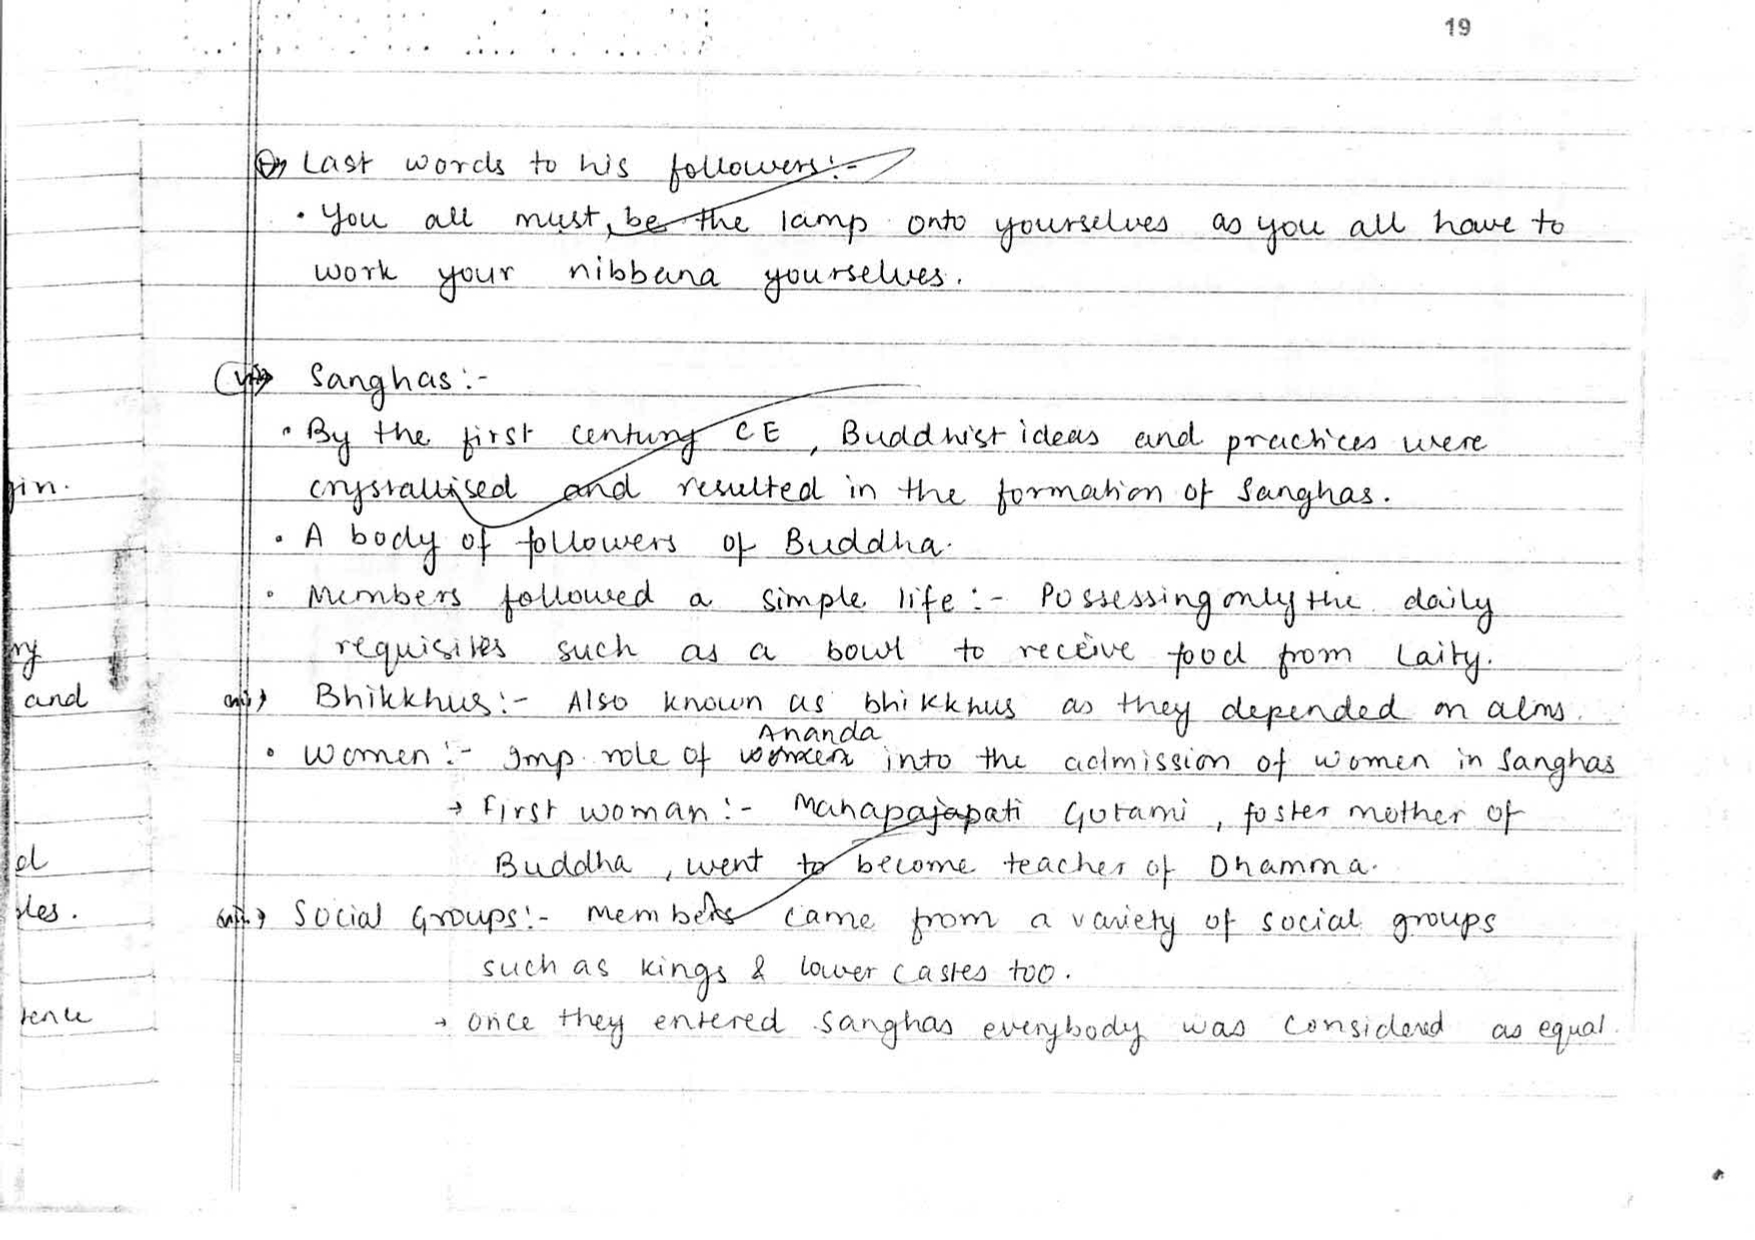 19
Last words to his followers:-
• You all must, be the lamp onto yourselves as you all have to
work your nibbana yourselves.
Sanghas:-
• By the first century CE, Buddhist ideas and practices were
crystallised and resulted in the formation of Sanghas.
gin.
• A body of followers of Buddha.
• Members followed a simple life:- Possessing only the daily
requisites such as a bowl to receive food from Laity.
and
Bhikkhus:- Also known as bhikkhus as they depended on alms.
Ananda
• Women:- Imp. role of women into the admission of women in Sanghas
→ First woman:- Mahapajapati Gotami, foster mother of
Buddha, went to become teacher of Dhamma.
les.
Social Groups:- Members came from a variety of social groups
such as kings & lower castes too.
tence
→ once they entered sanghas everybody was considered as equal.